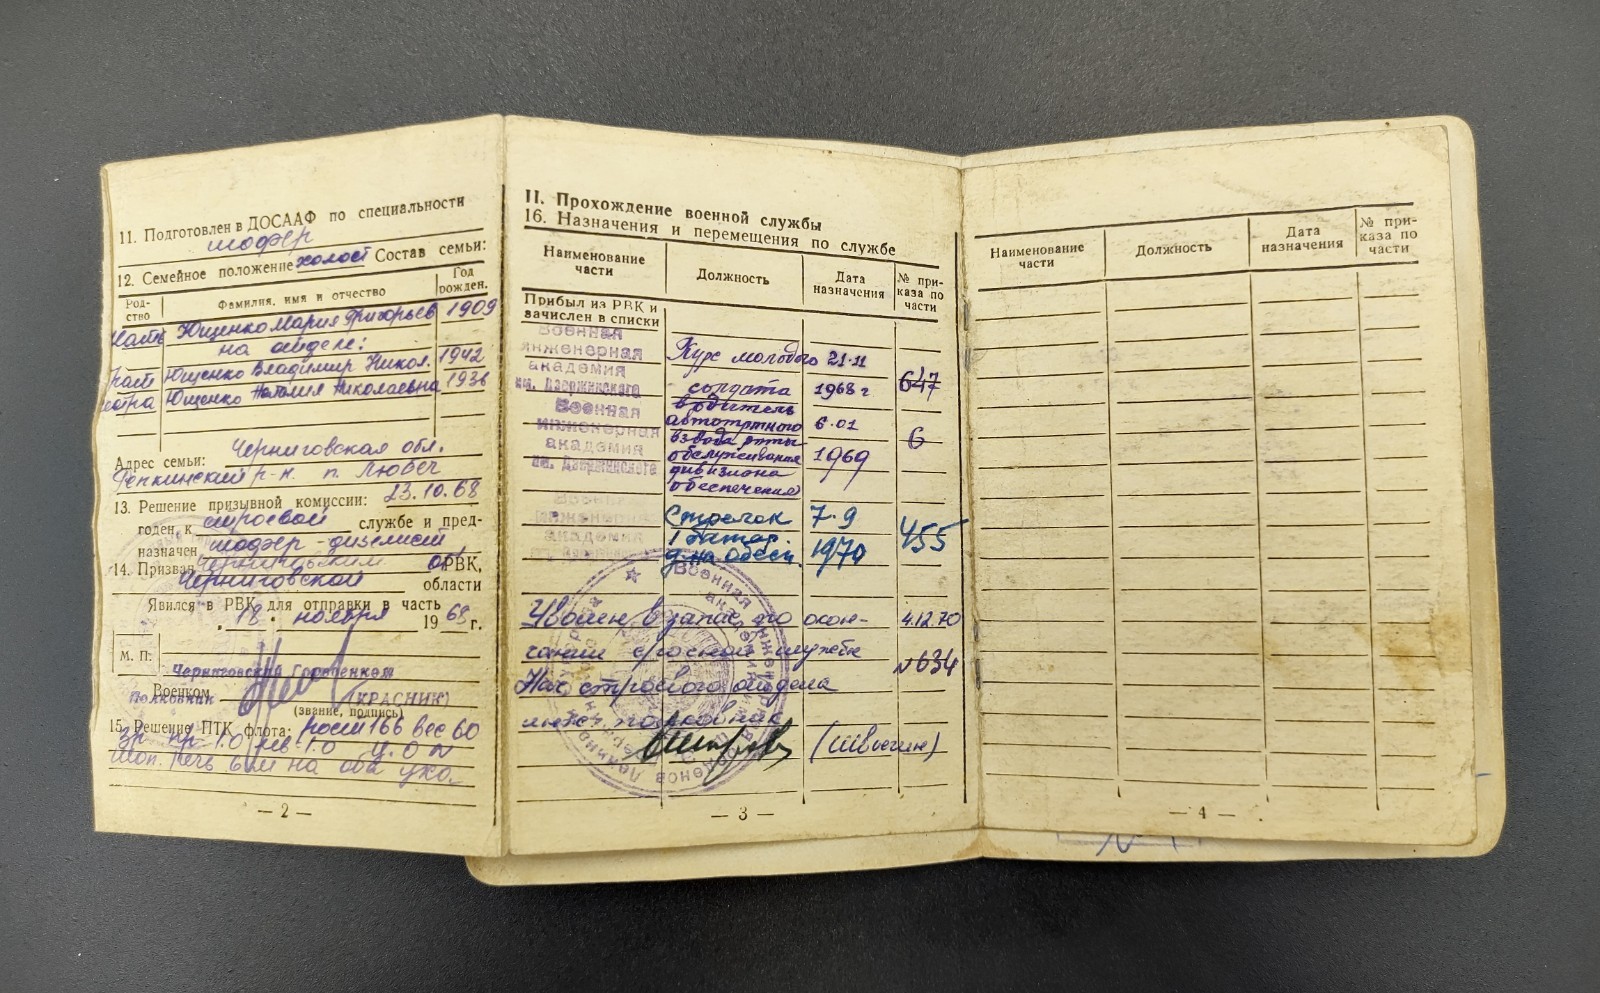 11. Подготовлен в ДОСААФ по специальности
шофер
12. Семейное положение холост Состав семьи:
Род-
ство
Фамилия, имя и отчество
Год
рожден.
мать Ющенко Мария Григорьев 1909
на отделе:
брат Ющенко Владимир Никол. 1942
сестра Ющенко Наталия Николаевна 1936
Адрес семьи: Черниговская обл.
Репкинский р-н. п. Любеч
13. Решение призывной комиссии: 23.10.68
годен к строевой службе и пред-
назначен шофер-дизелист
14. Призван Черниговским ОРВК,
Черниговской области
Явился в РВК для отправки в часть
18. ноября 1968 г.
М. П.
Черниговский Горвоенком
Военком
Полковник (КРАСНИК)
(звание, подпись)
15. Решение ПТК флота: рост 166 вес 60
Зр. пр-1.0 лев-1.0 ц.о. N
Шоп. речь 6 м на оба уха.
— 2 —
II. Прохождение военной службы
16. Назначения и перемещения по службе
Наименование
части
Должность
Дата
назначения
№ при-
каза по
части
Прибыл из РВК и
зачислен в списки
Военная
инженерная
академия
им. Дзержинского
Курс молодого
солдата
21.11
1968 г
647
Военная
инженерная
академия
им. Дзержинского
водитель
автотртного
взвода роты
обслуживания
дивизиона
обеспечения
6.01
1969
6
Военная
инженерная
академия
им. Дзержинского
Стрелок
1 батар.
д-на обесп.
7.9
1970
455
Уволен в запас по окон-
чании срочной службы
4.12.70
№634
Нач. строевого отдела
инж. полковник
(Швыгин)
— 3 —
Наименование
части
Должность
Дата
назначения
№ при-
каза по
части
— 4 —